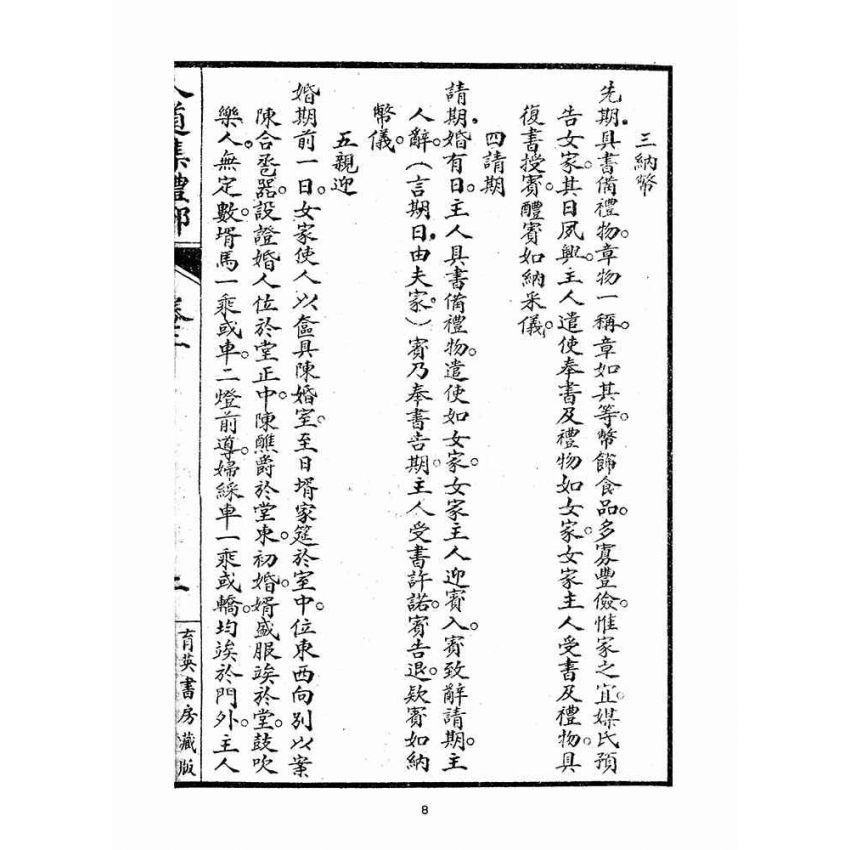 三納幣
先期。具書備禮物。章物一稱。章如其等。幣篩食品。多寡豐儉。惟家之宜。媒氏預
告女家。其日夙興。主人遣使奉書及禮物如女家。女家主人受書及禮物。具
復書授賓。醴賓如納采儀。
四請期
請期。婚有日。主人具書備禮物。遣使如女家。女家主人迎賓入。賓致辭請期。主
人辭。（言期日。由夫家。）賓乃奉書告期。主人受書許諾。賓告退。欵賓如納
幣儀。
五親迎
婚期前一日。女家使人以奩具陳婚室。至日壻家筵於室中。位東西向別以案
陳合巹器。設證婚人位於堂正中。陳醮爵於堂東。初婚。婿盛服竢於堂。鼓吹
樂人。無定數。壻馬一乘或車。二燈前導。婦綵車一乘或轎。均竢於門外。主人
人道集禮部
卷三
育英書房藏版
8